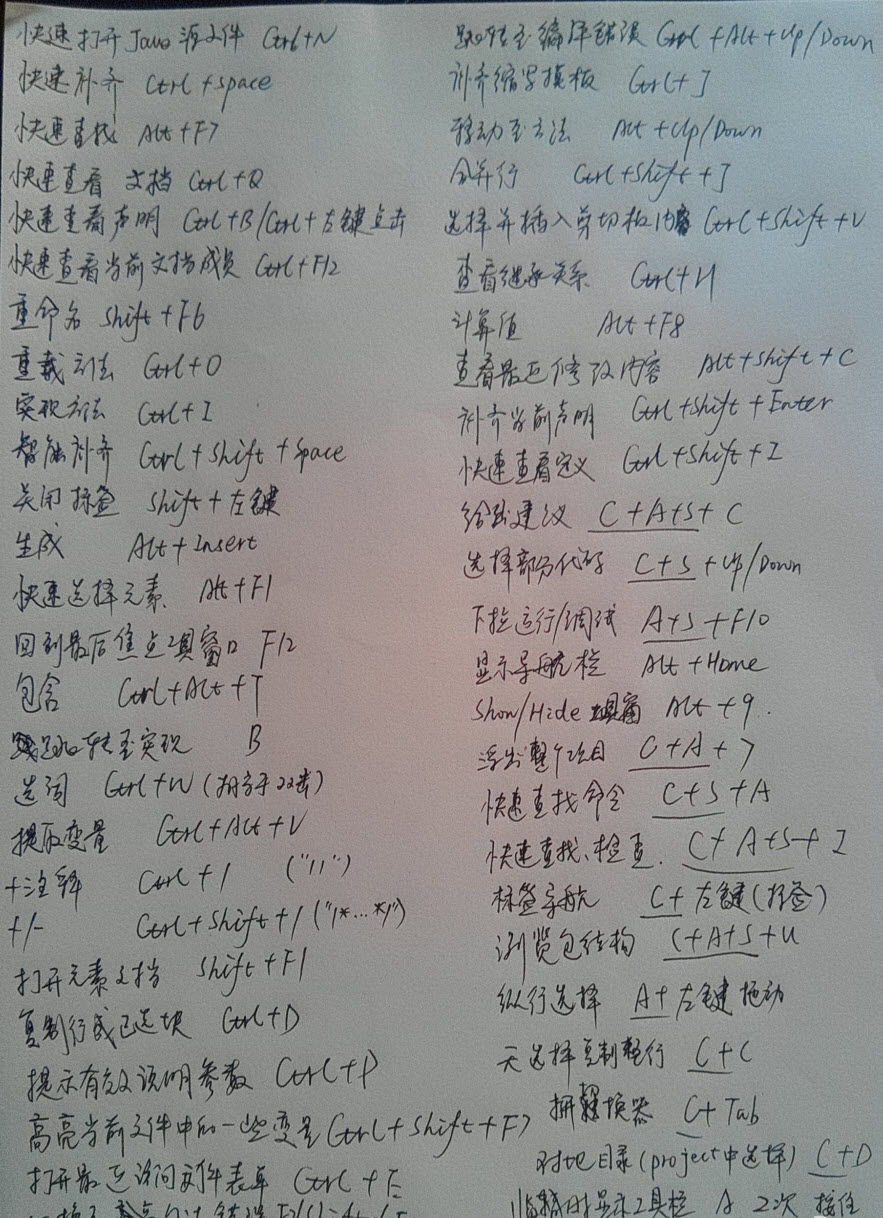 快速打开Java源文件 Ctrl+N
快速补齐 Ctrl+space
快速查找 Alt+F7
快速查看 文档 Ctrl+Q
快速查看声明 Ctrl+B/Ctrl+左键点击
快速查看当前文档成员 Ctrl+F12
重命名 Shift+F6
重载方法 Ctrl+O
实现方法 Ctrl+I
智能补齐 Ctrl+Shift+Space
关闭标签 Shift+左键
生成 Alt+Insert
快速选择元素. Alt+F1
回到最后焦点工具窗口 F12
包含 Ctrl+Alt+T
跳转至实现 B
选词 Ctrl+W(相当于双击)
提取变量 Ctrl+Alt+V
+注释 Ctrl+/ ("//")
+/- Ctrl+Shift+/ ("/*...*/")
打开元素文档 Shift+F1
复制行或已选块 Ctrl+D
提示有效说明参数 Ctrl+P
高亮当前文件中的一些变量 Ctrl+Shift+F7
打开最近访问文件表单 Ctrl+E
跳转至编译错误 Ctrl+Alt+Up/Down
补齐缩写模板 Ctrl+J
移动至方法 Alt+Up/Down
合并行 Ctrl+Shift+J
选择并插入剪切板内容 Ctrl+Shift+V
查看继承关系 Ctrl+H
计算值 Alt+F8
查看最近修改内容 Alt+Shift+C
补齐当前声明 Ctrl+Shift+Enter
快速查看定义 Ctrl+Shift+I
给出建议 C+A+S+C
选择部分代码 C+S+Up/Down
下拉运行/调试 A+S+F10
显示导航栏 Alt+Home
Show/Hide 工具窗 Alt+9.
浮出整个项目 C+A+7
快速查找命令 C+S+A
快速查找、检查. C+A+S+I
标签导航 C+左键(标签)
浏览包结构 C+A+S+U
纵行选择 A+左键拖动
无选择复制整行 C+C
切换器 C+Tab
对比目录(project中选择) C+D
临时显示工具栏 A 2次 按住